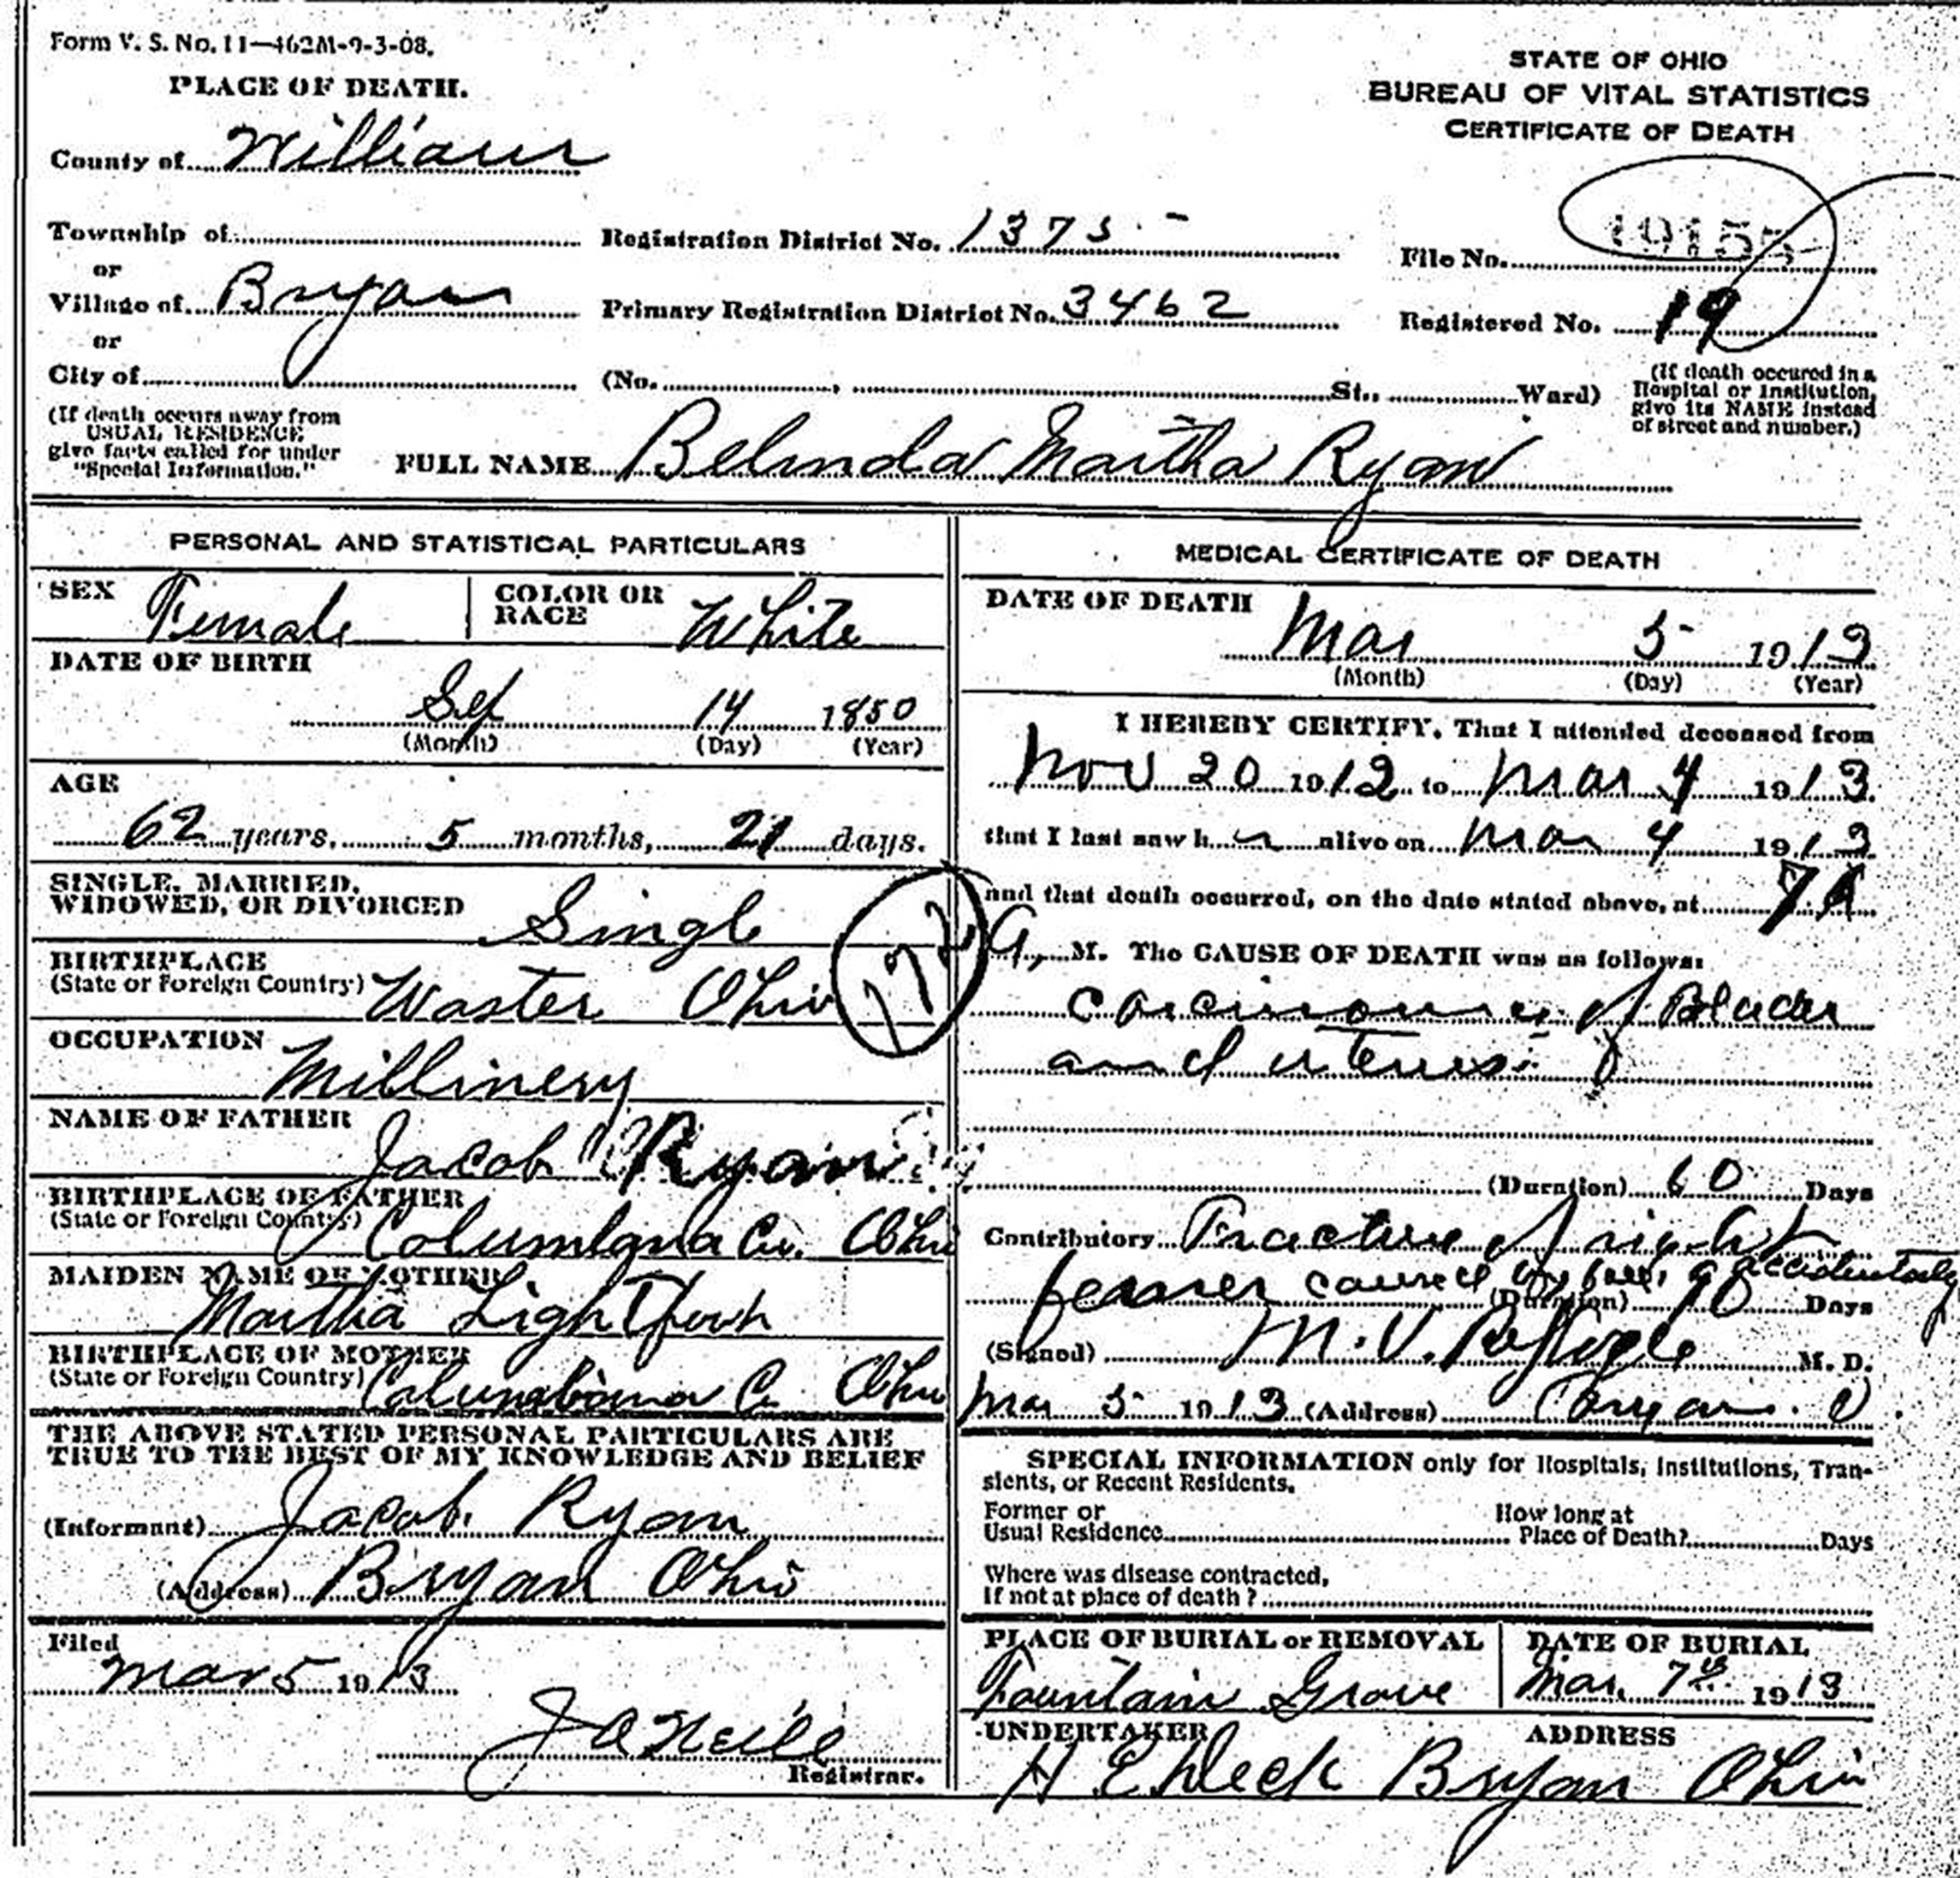 Form V. S. No. 11—462M-9-3-08.
PLACE OF DEATH.
STATE OF OHIO
BUREAU OF VITAL STATISTICS
CERTIFICATE OF DEATH
County of Williams
Township of
Registration District No. 1375 -
File No. 19155
or
Village of Bryan
Primary Registration District No. 3462
Registered No. 19
or
City of
(No. , St., Ward)
(If death occured in a
Hospital or Institution,
give its NAME instead
of street and number.)
(If death occurs away from
USUAL RESIDENCE
give facts called for under
"Special Information."
FULL NAME Belinda Martha Ryan
PERSONAL AND STATISTICAL PARTICULARS
SEX Female
COLOR OR
RACE White
DATE OF BIRTH
Sep 14 1850
(Month) (Day) (Year)
AGE
62 years, 5 months, 21 days.
SINGLE, MARRIED,
WIDOWED, OR DIVORCED Singl
BIRTHPLACE
(State or Foreign Country) Woster Ohio
OCCUPATION
Millinery
NAME OF FATHER
Jacob Ryan
BIRTHPLACE OF FATHER
(State or Foreign Country) Columbana Co. Ohio
MAIDEN NAME OF MOTHER
Martha
BIRTHPLACE OF MOTHER
(State or Foreign Country) Columbiana Co Ohio
THE ABOVE STATED PERSONAL PARTICULARS ARE
TRUE TO THE BEST OF MY KNOWLEDGE AND BELIEF
(Informant) Jacob Ryan
(Address) Bryan Ohio
Filed
Mar 5 1913
J A Neill
Registrar.
172
MEDICAL CERTIFICATE OF DEATH
DATE OF DEATH
Mar 5 1913
(Month) (Day) (Year)
I HEREBY CERTIFY, That I attended deceased from
Nov 20 1912 to Mar 4 1913
that I last saw h er alive on Mar 4 1913
and that death occurred, on the date stated above, at 7
A. M. The CAUSE OF DEATH was as follows:
carcinoma of Bladder
and
(Duration) 60 Days
Contributory Fracture of right
femer caused by fall, accidentaly
(Duration) 90 Days
(Signed) M. V. Replogle M. D.
Mar 5 1913 (Address) Bryan. O.
SPECIAL INFORMATION only for Hospitals, Institutions, Tran-
sients, or Recent Residents.
Former or
Usual Residence
How long at
Place of Death? Days
Where was disease contracted,
If not at place of death?
PLACE OF BURIAL or REMOVAL
Fountain Grove
DATE OF BURIAL
Mar. 7th 1913
UNDERTAKER
ADDRESS
Bryan Ohio